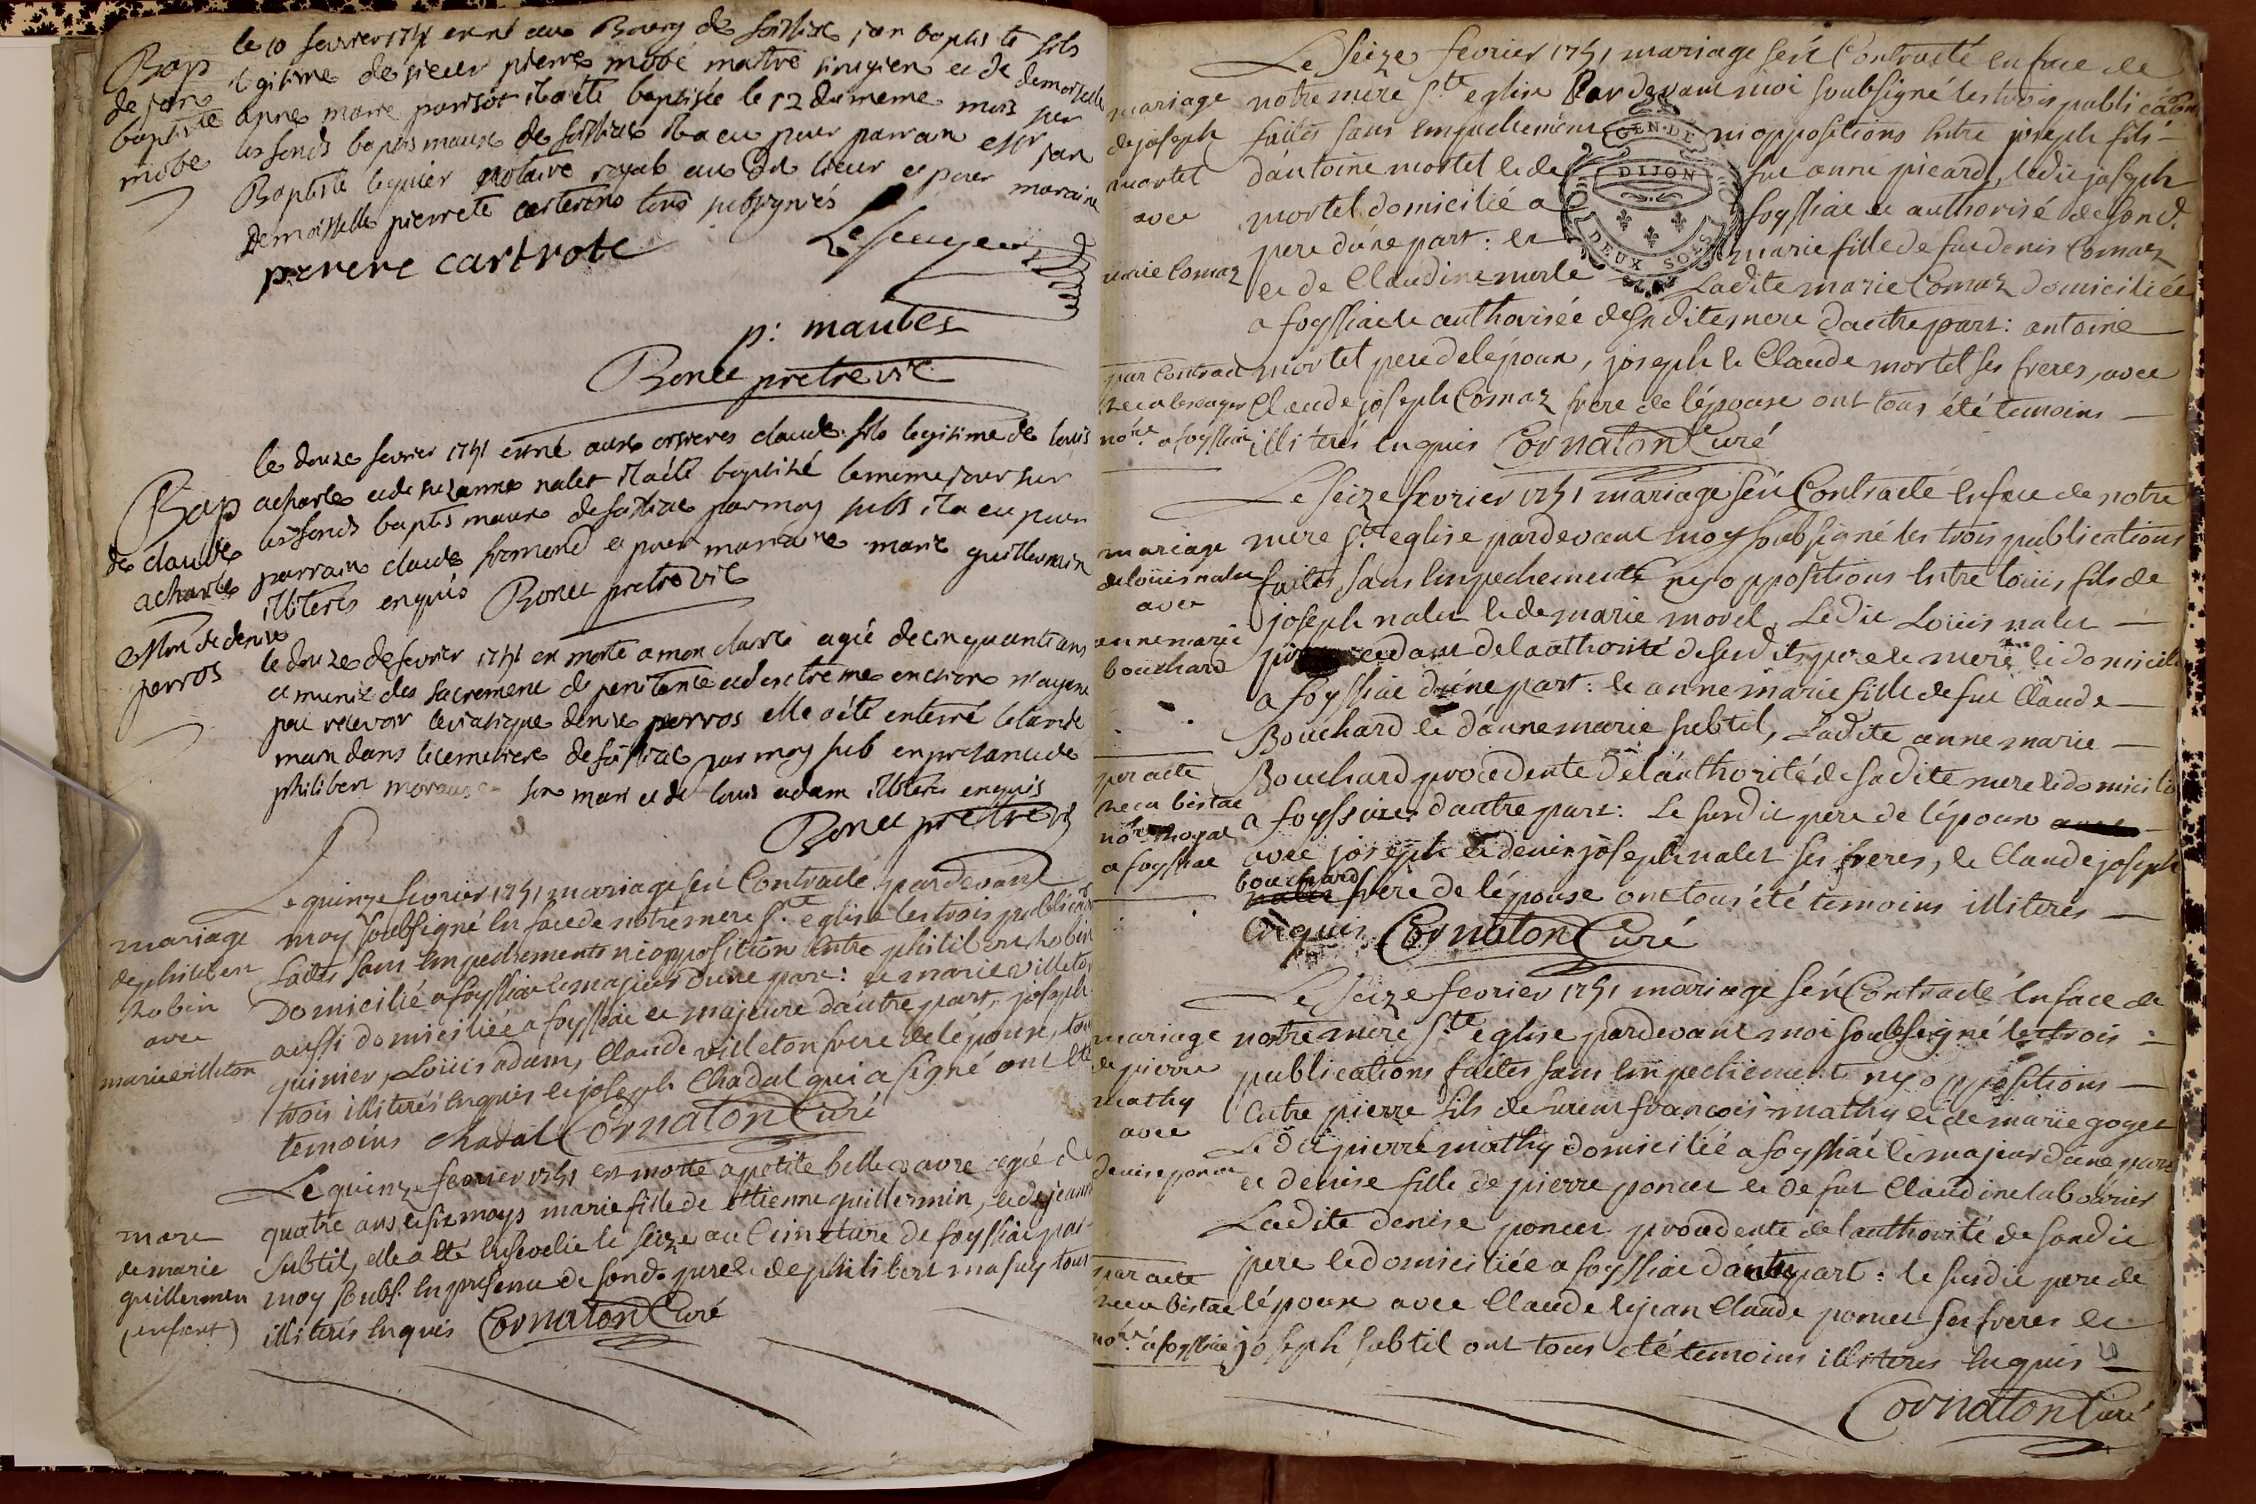 le 10 fevrier 1751 est né au Bourg de foissiat jan baptiste fils
Bap
de jan
baptiste
mobé
legitime de sieur pierre mobé maitre sirugien et de demoiselle
anne marie parisot il a été baptisée le 12 du meme mois sur
les fonds baptismaux de foissiat il a eu pour parrain esir jan
Baptiste leguier notaire royal au dit lieur et pour maraine
Demoiselle pierrete carterone tous subsignés
pierere cartrote
p: maubes
Bonet pretre vic
le douze fevrier 1751 est né aux orsieres claude fils legitime de louis
Bap
de claude
acharles
acharle et de suzanne nalet il a été baptisé le meme jour sur
les fonds baptis maux de foissiat par moy subs il a eu pour
parrain claude formond et pour marraine marie guillermin
illiterés enquis Bonet pretre vic
Mor de denise
perros
le douze de fevrier 1751 est morte a mon classé agée de cinquante ans
et munie des sacrement de penitence et d'extreme onction n'ayant
pu recevoir le viatique denise perros elle a été enterré le lende
main dans le cemetiere de foissiat par moy sub en presance de
philibert moraux son mari et de louis adam illiterés enquis
Bonet pretre vic
Le quinze fevrier 1751 mariage fért Contracté pardevant
mariage
de philibert
Robin
avec
marie villeton
moy soubsigné en face de notre mere Ste eglise les trois publications
faites sans empechements ni opposition entre philibert Robin
Domicilié a foyssiat et majeur d'une part: et marie villeton
aussi domiciliée a foyssiat et majeure d'autre part, joseph
guinier, Loüis adam, Claude villeton frere de lépouse, tous
trois illiterés enquis et joseph Chadal qui a signé ont été
temoins chadal Cornaton Curé
Le quinze fevrier 1751 est morte a petite belle vavre agée de
mort
de marie
guillermin
(enfant)
quatre ans et six moys marie fille de ettienne guillermin, et de jeanne
Subtil, elle a été Ensevelie le seize au Cimeture de foyssiat par
moy soubs. En presence de sond. pere et de philibert mafuy tous
illiterés enquis Cornaton Curé
Le Seize fevrier 1751 mariage fért Contracté en face de
mariage
de joseph
mortel
avec
marie Comaz
par Contract
notre mere Ste eglise Par devant moi soubsigné les trois publications
faites sans empechement ni oppositions entre joseph fils
d'antoine mortel et de fue anne picard, ledit joseph
GEN. DE
DIJON
DEUX SOLS
mortel domicilié a foyssiat et authorisé de sond.
pere d'une part: et marie fille de fue denis Comaz
et de Claudine morle Ladite marie Comaz domiciliée
a foyssiat et authorisée de sadite mere d'autre part: antoine
mortel pere de lépoux, joseph et Claude mortel ses freres, avec
Claude joseph Comaz frere de lépouse ont tous été temoins
nore a foyssiat
illiterés enquis Cornaton Curé
Le Seize fevrier 1751 mariage fért Contracté En face de notre
mariage
de loüis nalet
avec
anne marie
bouchard
mere Ste eglise pardevant moy soubsigné les trois publications
faites sans Empechements ny oppositions Entre loüis fils de
joseph nalet et de marie morel, Ledit Loüis nalet
procedant de lauthorité de sesdits pere et mere et domicilié
a foyssiat d'une part: et anne marie fille de fue Claude
Bouchard et d'anne marie subtil, Ladite anne marie
par acte
recu bestac
nore Royal
a foyssiat
Bouchard procedente de l'authorité de sadite mere et domiciliée
a foyssiat d'autre part: Le susdit pere de lépoux
avec joseph et denis joseph nalet ses freres, et Claude joseph
bouchard
frere de lépouse ont tous été temoins illiterés
Enquis Cornaton Curé
Le Seize fevrier 1751 mariage fért Contracté En face de
mariage
de pierre
mathy
avec
denise poncet
notre mere Ste eglise pardevant moi soubsigné les trois
publications faites sans Empechements ny oppositions
Entre pierre fils de sieur françois mathy et de marie goyet
Ledit pierre mathy domicilié a foyssiat et majeur d'une part
et denise fille de pierre poncet et de fue Claudine labourier
Ladite denise poncet procedente de l'authorité de sondit
par acte
recu bestac
nore a foyssiat
pere et domiciliée a foyssiat d'autre part: le susdit pere de
lépoux avec Claude et jean Claude poncet ses freres et
joseph subtil ont tous été temoins illiteres enquis
Cornaton Curé